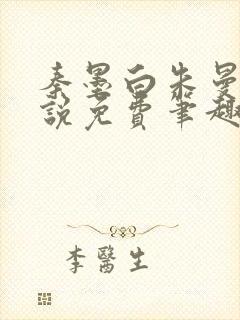 秦墨白朱曼
說免費筆趣
李醫生